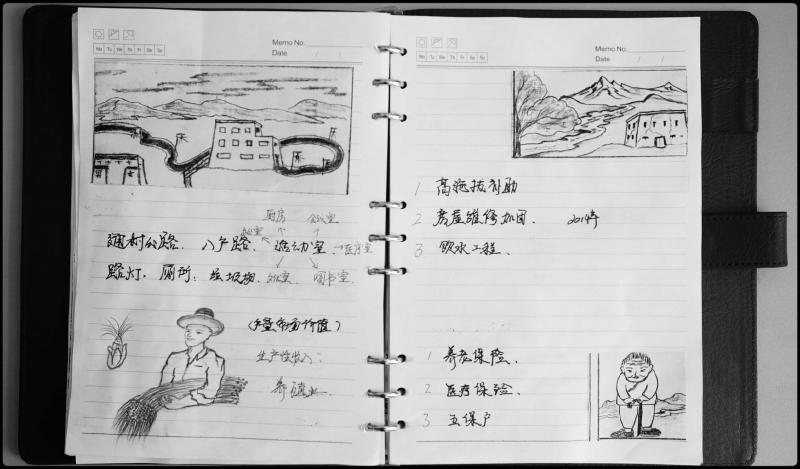 Memo No.
Mo Tu We Th Fr Sa Su
Date / /
厨房 会议室
通村公路、入户路、活动室、医疗室
路灯、厕所、垃圾池、图书室
(产量市场价值)
生产性收入:
养殖业
Memo No.
Mo Tu We Th Fr Sa Su
Date / /
1 高海拔补助
2 房屋维修加固、 2014年
3 饮水工程、
1 养老保险、
2 医疗保险、
3 五保户